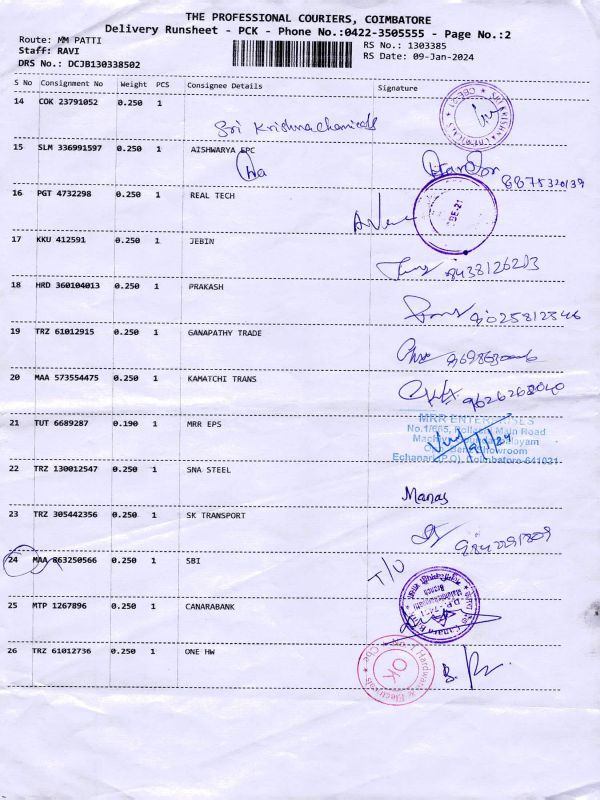 THE PROFESSIONAL COURIERS, COIMBATORE
Delivery Runsheet - PCK - Phone No.:0422-3505555 - Page No.:2
Route: MM PATTI
Staff: RAVI
DRS No.: DCJB130338502
RS No.: 1303385
RS Date: 09-Jan-2024
S No Consignment No Weight PCS Consignee Details Signature
14 COK 23791052 0.250 1
Sri Krishna
15 SLM 336991597 0.250 1 AISHWARYA EPC
8875320139
16 PGT 4732298 0.250 1 REAL TECH
17 KKU 412591 0.250 1 JEBIN
9438126213
18 HRD 360104013 0.250 1 PRAKASH
9025812346
19 TRZ 61012915 0.250 1 GANAPATHY TRADE
20 MAA 573554475 0.250 1 KAMATCHI TRANS
9626268040
21 TUT 6689287 0.190 1 MRR EPS
MRR ENTERPRISES
Main Road
Showroom
Echanari (P.O), Coimbatore-641021
9/1/24
22 TRZ 130012547 0.250 1 SNA STEEL
Manas
23 TRZ 305442356 0.250 1 SK TRANSPORT
24 MAA 863250566 0.250 1 SBI
T/O
25 MTP 1267896 0.250 1 CANARABANK
26 TRZ 61012736 0.250 1 ONE HW
Hardware & Electricals
Cbe
OK